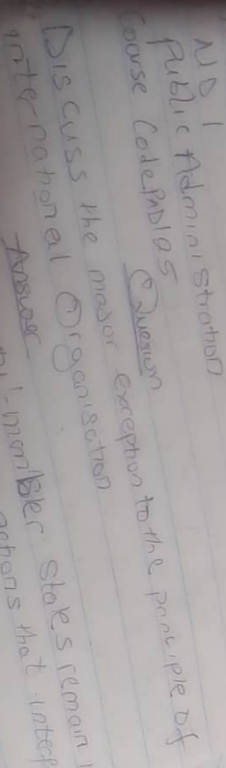 ND 1
Public Administration
Course Code PAD105
Question
Discuss the major exception to the principle of
international Organisation
Answer
member States remain
actions that interf